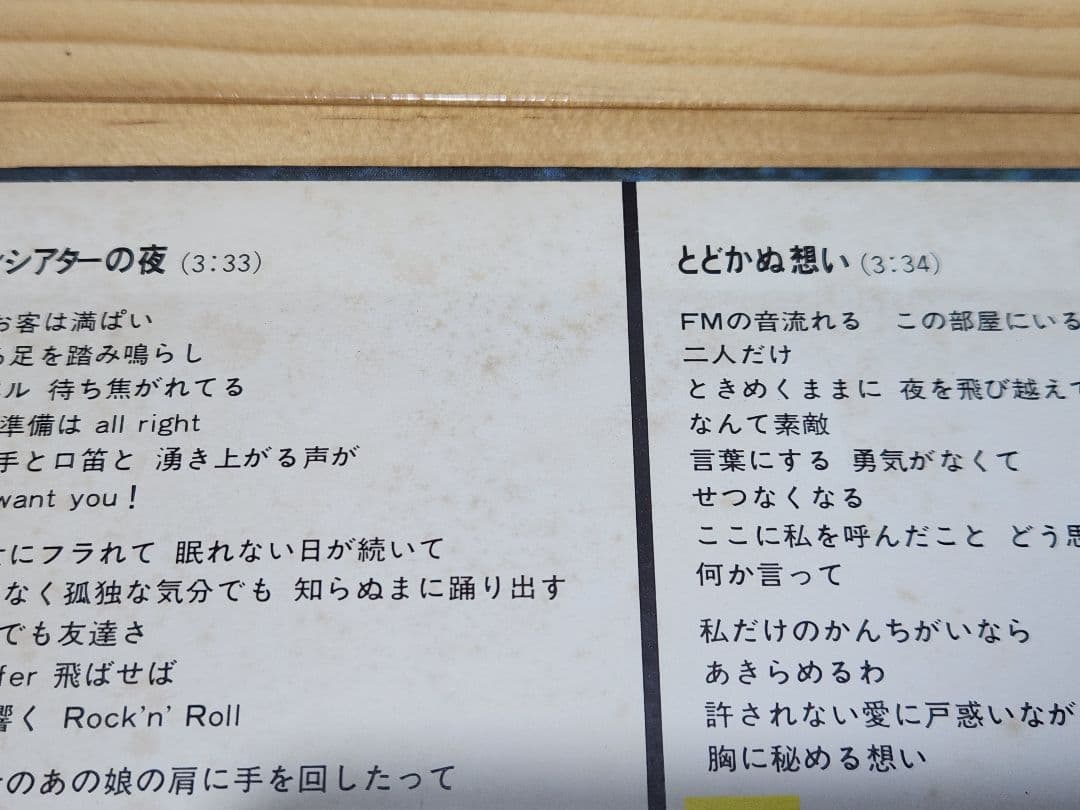 シアターの夜 (3:33)
お客は満ぱい
足を踏み鳴らし
ル 待ち焦がれてる
準備は all right
手と口笛と 湧き上がる声が
want you!
にフラれて 眠れない日が続いて
なく孤独な気分でも 知らぬまに踊り出す
でも友達さ
fer 飛ばせば
響く Rock'n' Roll
のあの娘の肩に手を回したって
とどかぬ想い (3:34)
FMの音流れる この部屋にいる
二人だけ
ときめくままに 夜を飛び越えて
なんて素敵
言葉にする 勇気がなくて
せつなくなる
ここに私を呼んだこと どう思
何か言って
私だけのかんちがいなら
あきらめるわ
許されない愛に戸惑いなが
胸に秘める想い